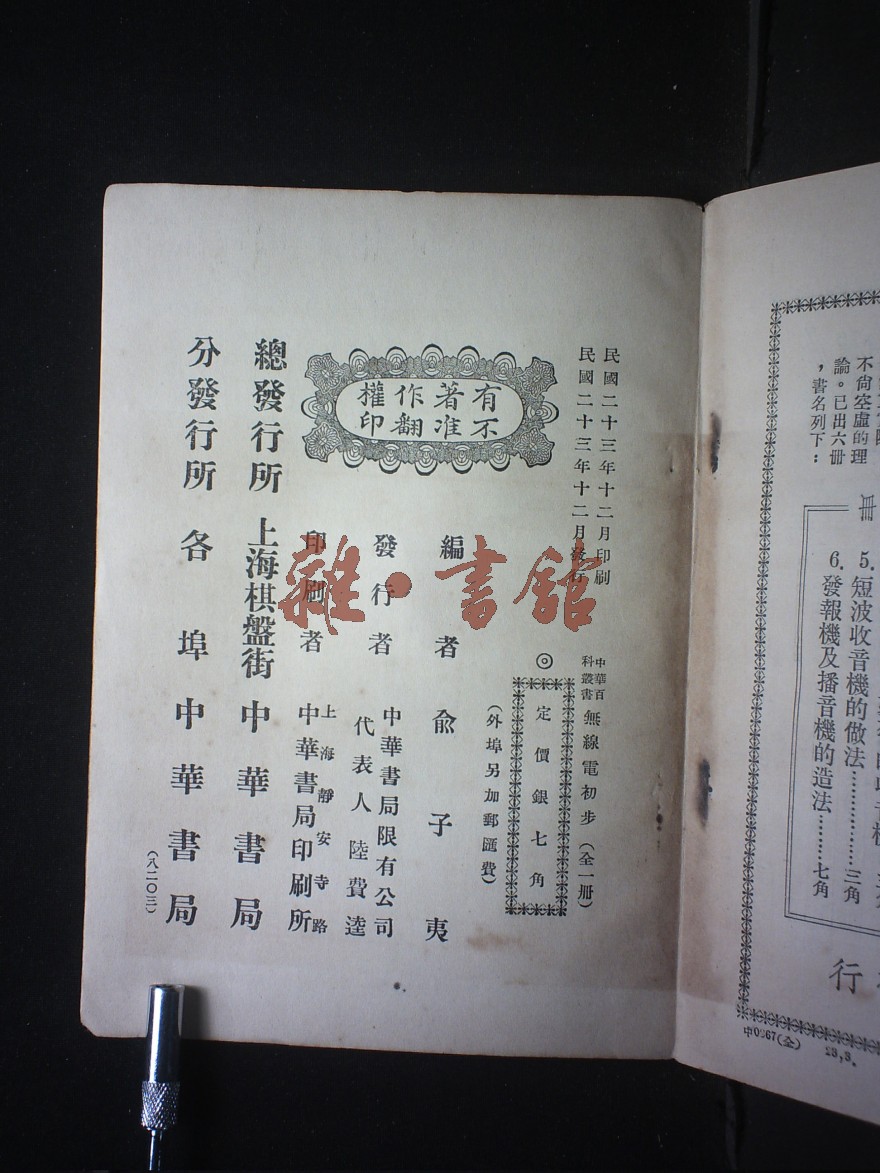 不尙空虛的理
論。已出六冊
，書名列下：
冊
5. 短波收音機的做法…………三角
6. 發報機及播音機的造法………七角
行
中0867(全) 23,3.
民國二十三年十二月印刷
民國二十三年十二月發行
中華百科叢書 無線電初步（全一册）
◎
定價銀七角
（外埠另加郵匯費）
有著作權
不准翻印
編者 兪子夷
發行者 中華書局有限公司
代表人 陸費逵
印刷者 上海靜安寺路
中華書局印刷所
總發行所 上海棋盤街 中華書局
分發行所 各埠 中華書局
（八二〇三）
雜·書館